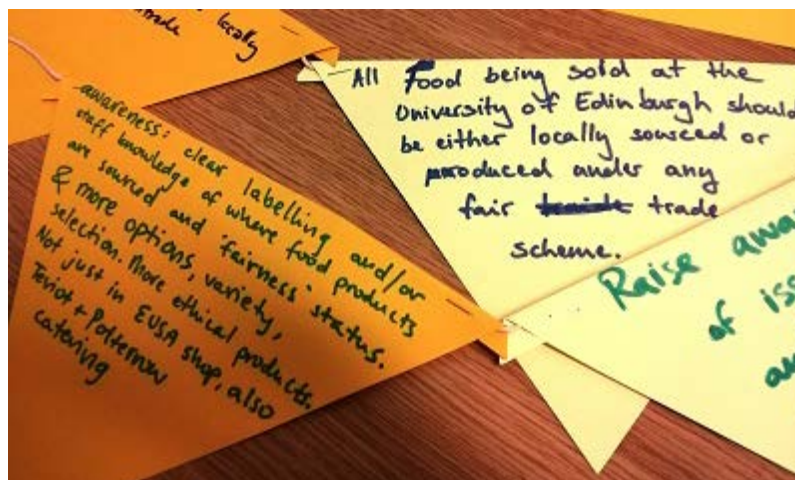 locally
trade
awareness: clear labelling and/or
staff knowledge of where food products
are sourced and 'fairness' status.
& more options, variety,
selection. More ethical products.
Not just in EUSA shop, also
Teviot + Pollock
catering
All Food being sold at the
University of Edinburgh should
be either locally sourced or
produced under any
fair trade
scheme.
Raise awa
of iss
an